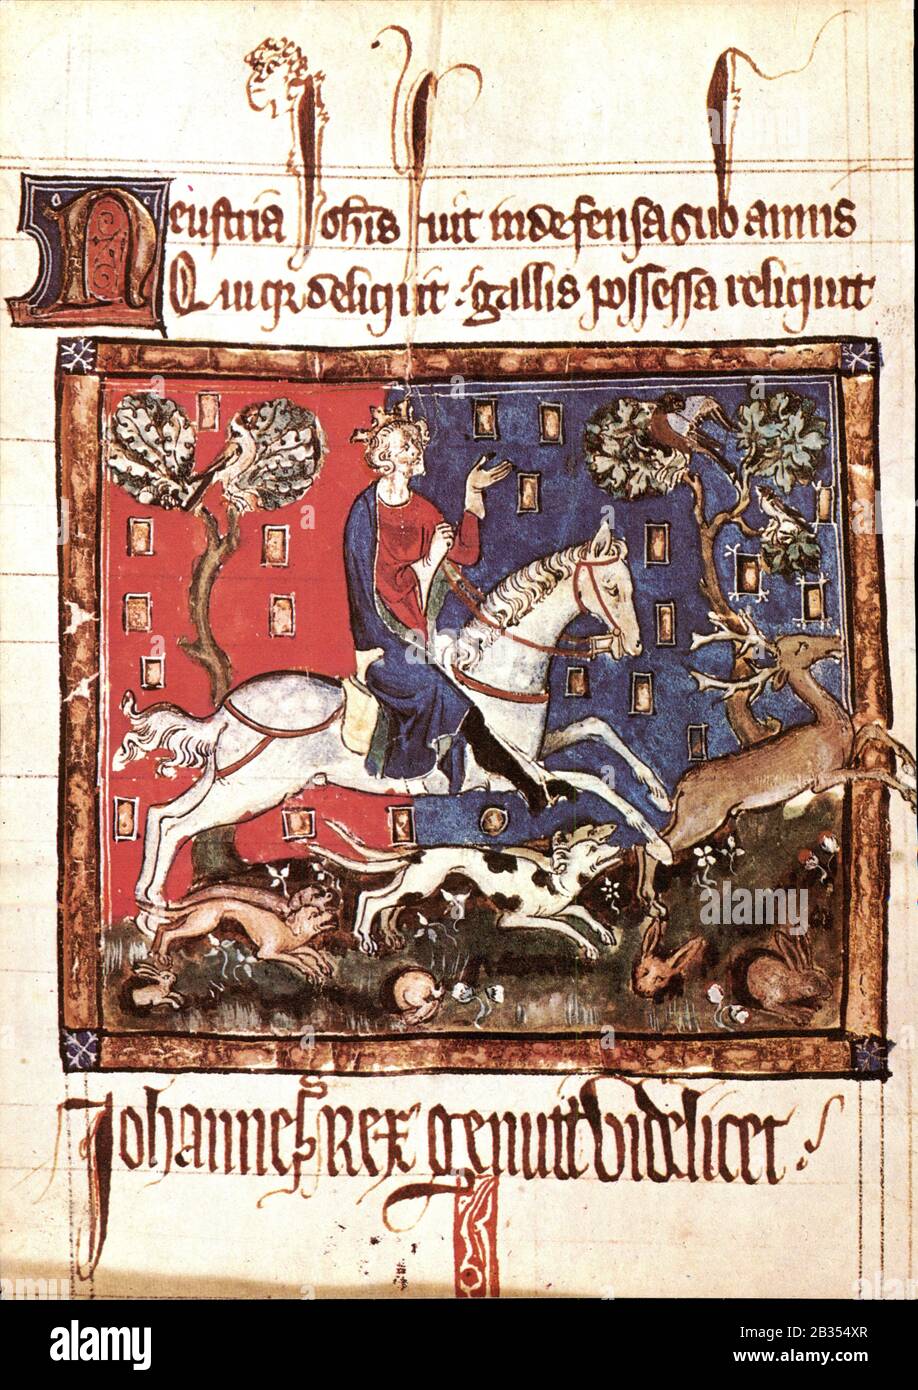 Neustria Johis fuit indefensa sub annis
Qui qr deliquit gallis possessa reliquit
Johannes Rex genuit videlicet
alamy
Image ID: 2B354XR
www.alamy.com